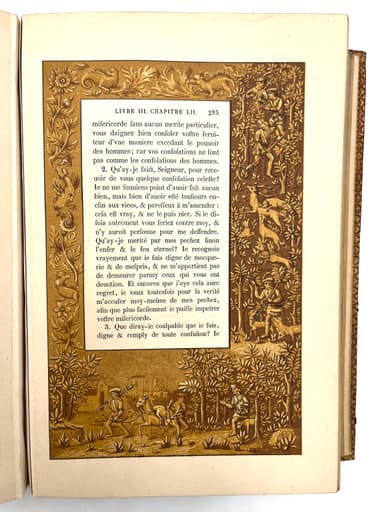 LIVRE III. CHAPITRE LII. 295
miſericorde ſans aucun merite particulier,
vous daignez bien conſoler voſtre ſerui-
teur d'vne maniere excedant le pouuoir
des hommes; car vos conſolations ne ſont
pas comme les conſolations des hommes.
2. Qu'ay-je faict, Seigneur, pour rece-
uoir de vous quelque conſolation celeſte?
Ie ne me ſouuiens point d'auoir fait aucun
bien, mais bien d'auoir eſté touſiours en-
clin aux vices, & pareſſeux à m'amender:
cela eſt vray, & ne le puis nier. Si ie di-
ſois autrement vous ſeriez contre moy, &
n'y auroit perſonne pour me deffendre.
Qu'ay-je merité par mes pechez ſinon
l'enfer & le feu eternel? Ie recognois
vrayement que ie ſuis digne de mocque-
rie & de meſpris, & ne m'appartient pas
de demeurer parmy ceux qui vous ont
deuotion. Et encores que i'oye cela auec
regret, ie veux toutesfois pour la verité
m'accuſer moy-meſme de mes pechez,
afin que plus facilement ie puiſſe impetrer
voſtre miſericorde.
3. Que diray-ie coulpable que ie ſuis,
digne & remply de toute confuſion? Ie